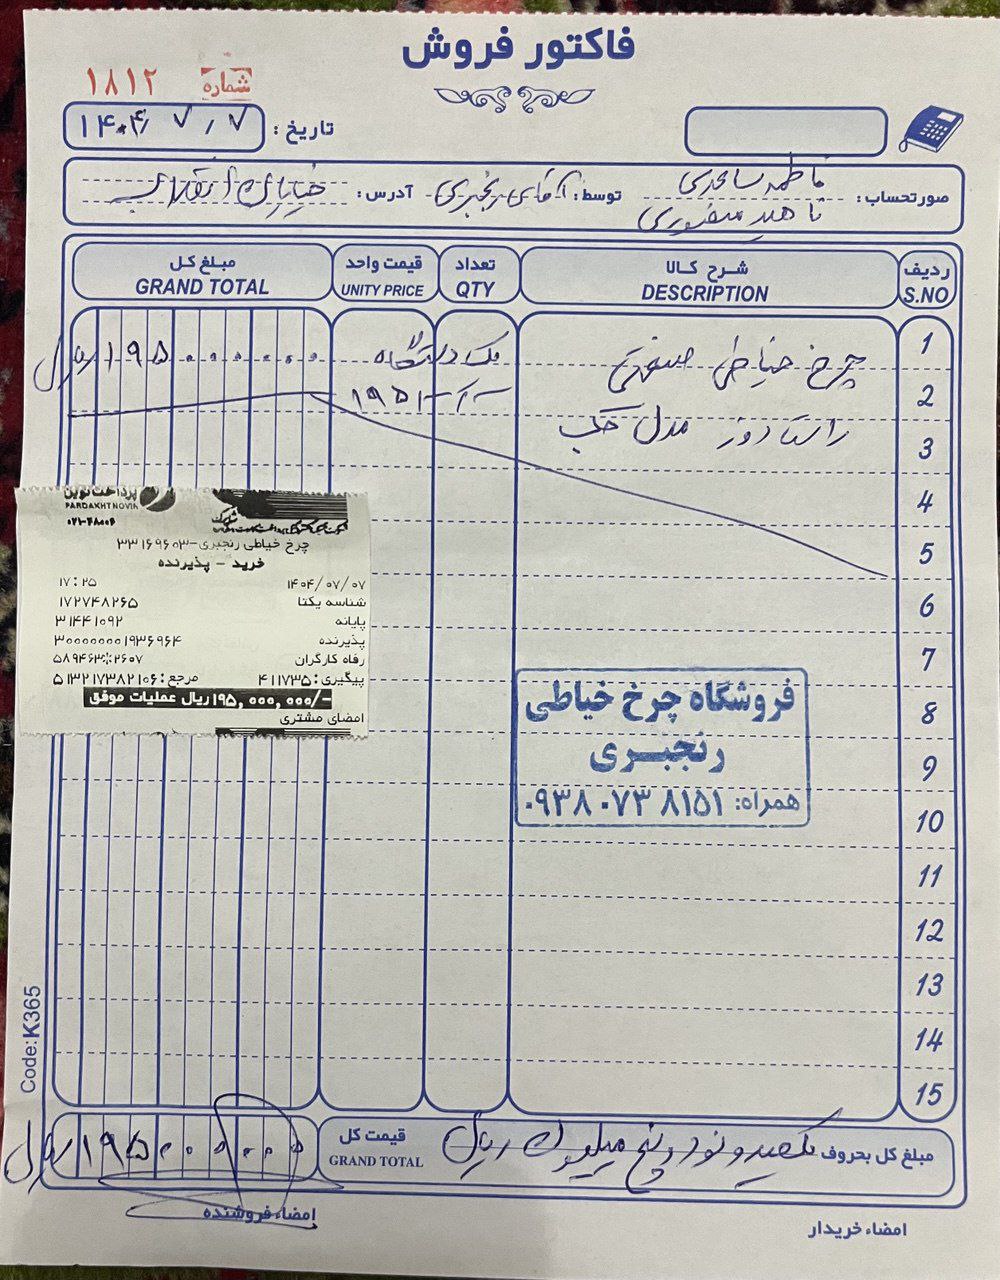 فاکتور فروش
شماره ۱۸۱۲
تاریخ : ۱۴۰۴/۷/۷
صورتحساب: فاطمه ساعدی توسط: آقای رنجبری آدرس: خیابان انقلاب
ناهید صفدری
ردیف شرح کالا تعداد قیمت واحد مبلغ کل
S.NO DESCRIPTION QTY UNITY PRICE GRAND TOTAL
1 چرخ خیاطی صنعتی یک دستگاه ۱۹۵۰۰۰۰۰۰ ریال
2
3 راسته دوز مدل جک
4
5
6
7
8
9
10
11
12
13
14
15
پرداخت نوین
PARDAKHT NOVIN
۰۲۱-۴۸۰۰۶
چرخ خیاطی رنجبری-۳۳۱۶۹۶۰۳
خرید - پذیرنده
۱۴۰۴/۰۷/۰۷ ۱۷:۲۵
شناسه یکتا ۱۷۲۷۴۸۲۶۵
پایانه ۳۱۴۴۱۰۹۲
پذیرنده ۳۰۰۰۰۰۰۰۱۹۳۶۹۶۴
رفاه کارگران ۵۸۹۴۶۳*۲۶۰۷
پیگیری:۴۱۱۷۳۵ مرجع:۵۱۳۲۱۷۳۸۲۱۰۶
۱۹۵,۰۰۰,۰۰۰/- ریال عملیات موفق
امضای مشتری
فروشگاه چرخ خیاطی
رنجبری
همراه: ۰۹۳۸ ۰۷۳ ۸۱۵۱
Code:K365
مبلغ کل بحروف یکصد و نود و پنج میلیون ریال قیمت کل ۱۹۵۰۰۰۰۰۰ ریال
GRAND TOTAL
امضاء خریدار امضاء فروشنده